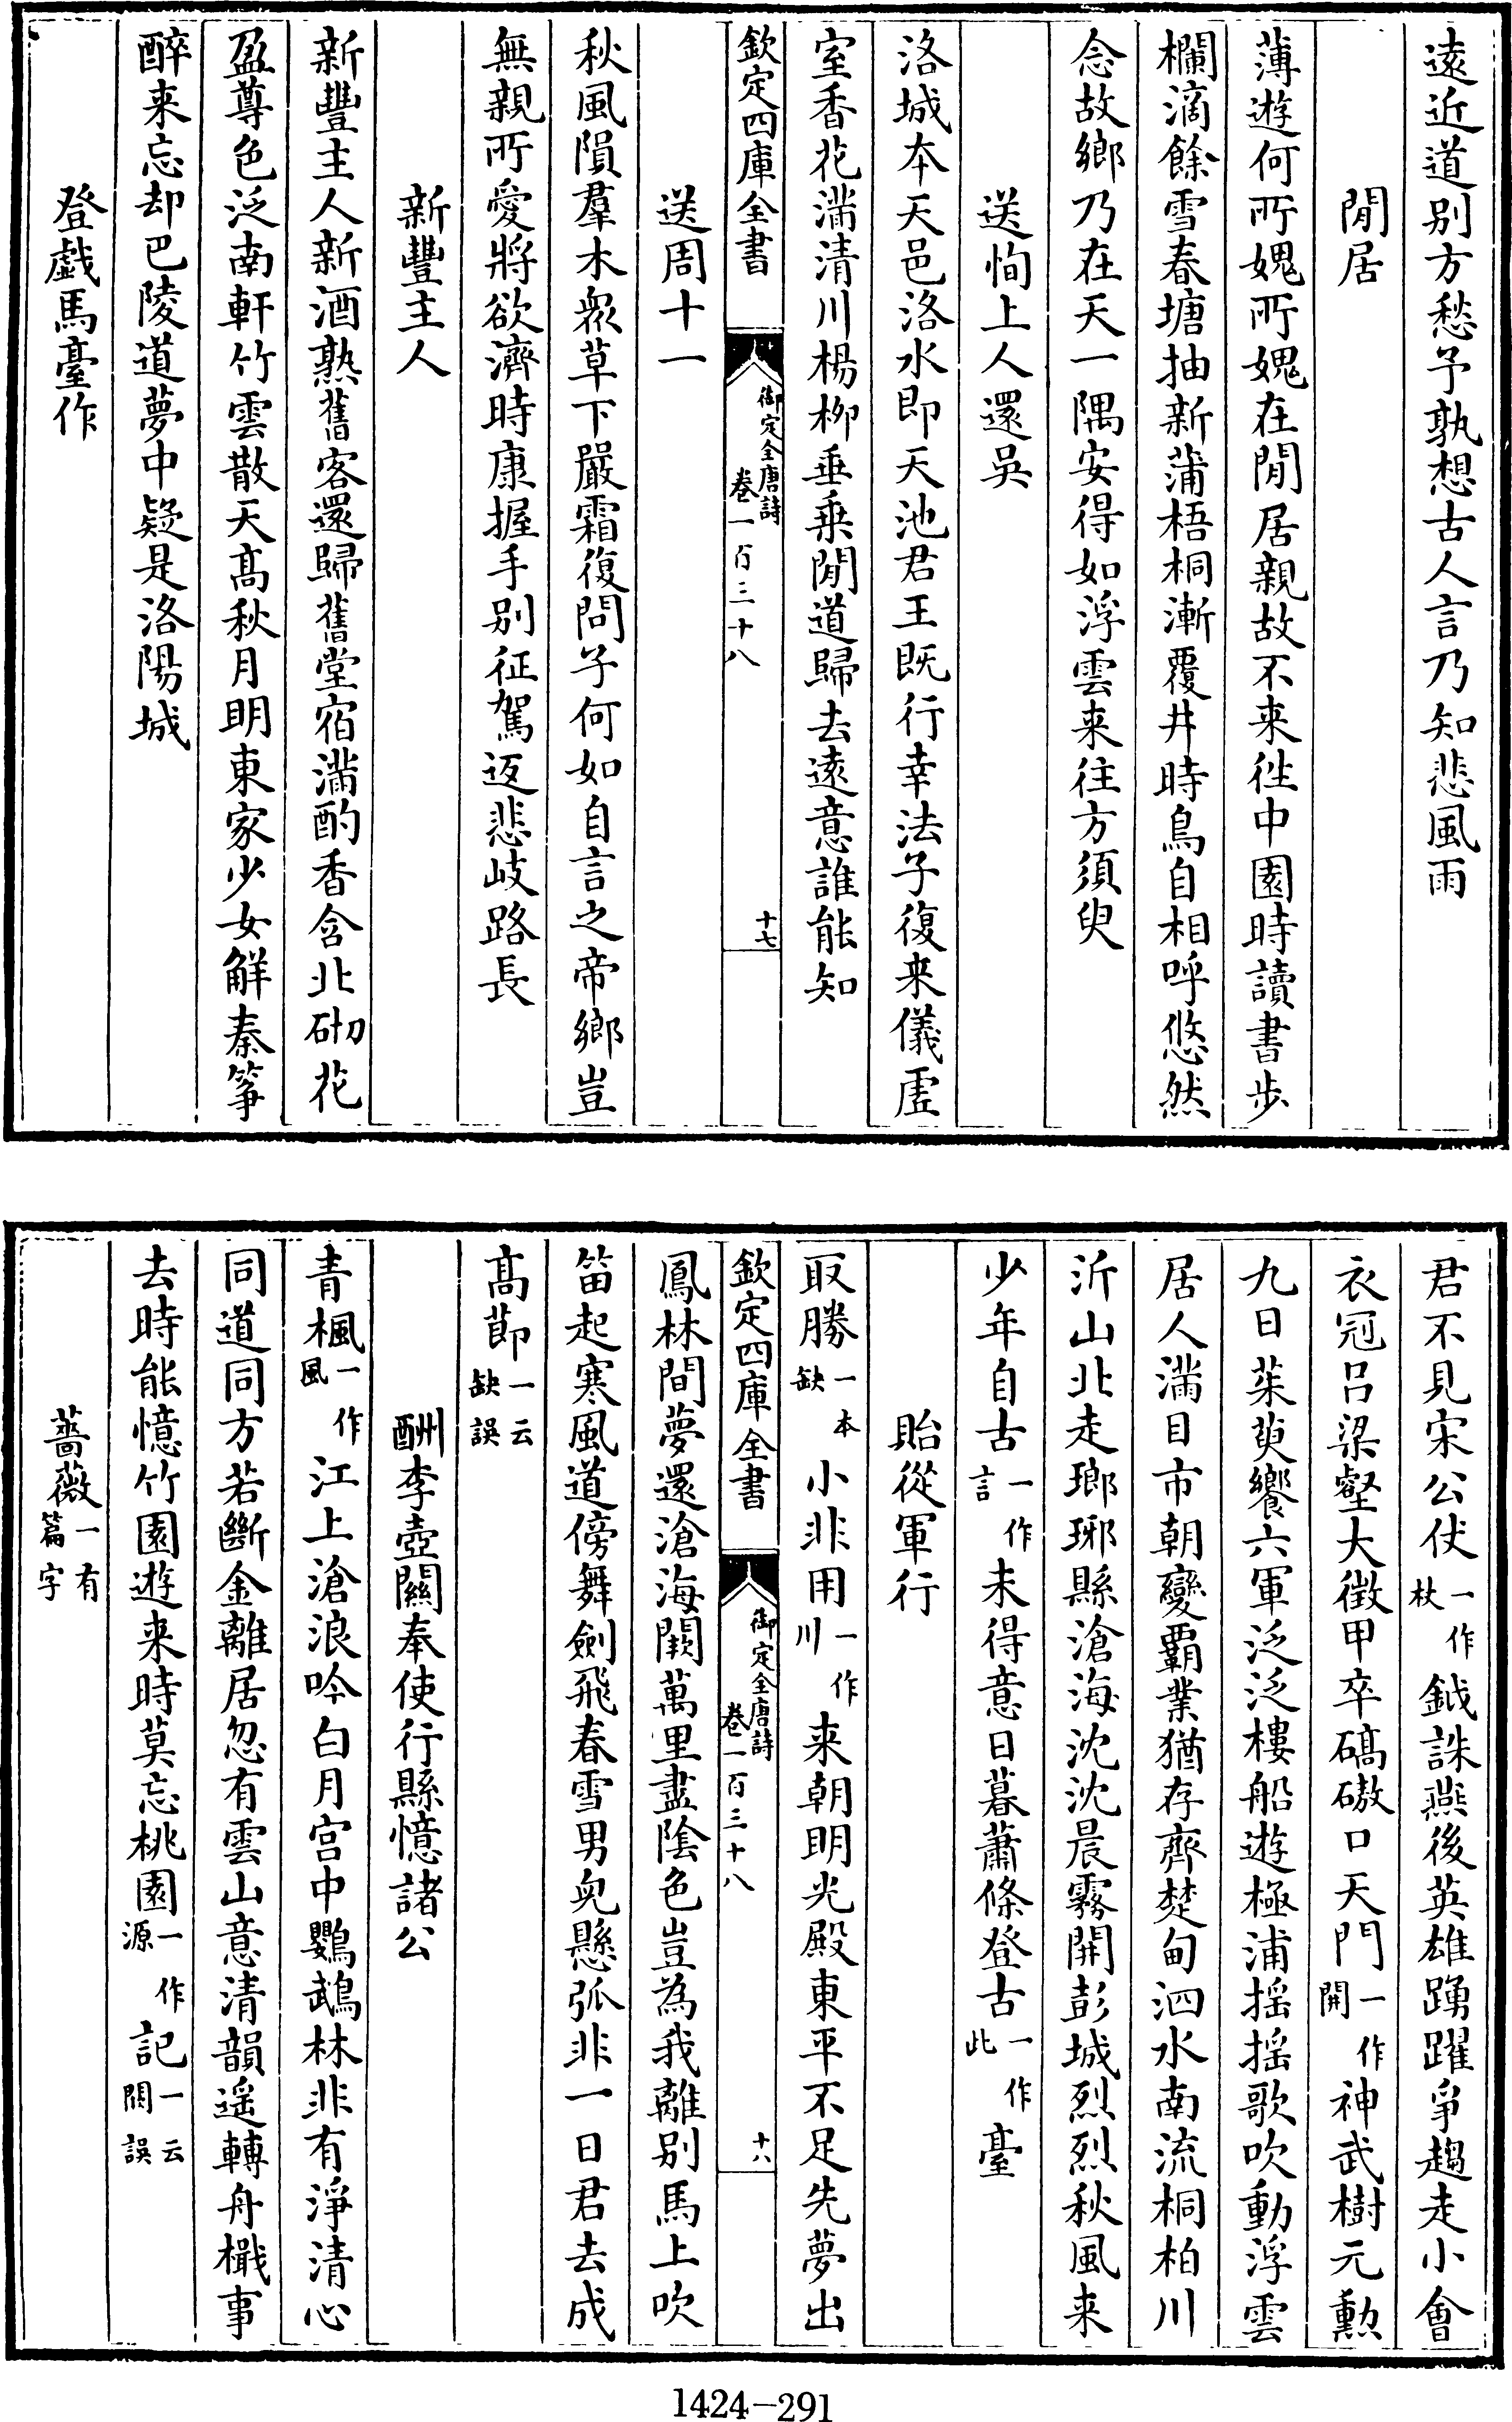 逺近道别方愁予孰想古人言乃知悲風雨
閒居
薄遊何所媿所媿在閒居親故不来徃中園時讀書步
欄滴餘雪春塘抽新蒲梧桐漸覆井時鳥自相呼悠然
念故鄉乃在天一隅安得如浮雲来往方須臾
送恂上人還吳
洛城本天邑洛水即天池君王既行幸法子復来儀虛
室香花滿清川楊柳垂乗閒道歸去逺意誰能知
欽定四庫全書
御定全唐詩
卷一百三十八
十七
送周十一
秋風隕羣木衆草下嚴霜復問子何如自言之帝鄉豈
無親所愛將欲濟時康握手别征駕返悲岐路長
新豐主人
新豐主人新酒熟舊客還歸舊堂宿滿酌香含北砌花
盈尊色泛南軒竹雲散天髙秋月明東家少女解秦筝
醉来忘却巴陵道夢中疑是洛陽城
登戯馬臺作
君不見宋公仗一作杖鉞誅燕後英雄踴躍爭趨走小會
衣冠呂梁壑大徴甲卒碻磝口天門一作開神武樹元勲
九日茱萸饗六軍泛泛樓船遊極浦揺揺歌吹動浮雲
居人滿目市朝變覇業猶存齊楚甸泗水南流桐柏川
沂山北走瑯琊縣滄海沈沈晨霧開彭城烈烈秋風来
少年自古一作言未得意日暮蕭條登古一作此臺
貽從軍行
取勝一本缺小非用一作川来朝明光殿東平不足先夢出
欽定四庫全書
御定全唐詩
卷一百三十八
十八
鳳林間夢還滄海闕萬里盡陰色豈為我離别馬上吹
笛起寒風道傍舞劍飛春雪男兒懸弧非一日君去成
髙節一云缺誤
酬李壺關奉使行縣憶諸公
青楓一作風江上滄浪吟白月宫中鸚鵡林非有淨清心
同道同方若斷金離居忽有雲山意清韻遥轉舟檝事
去時能憶竹園遊来時莫忘桃園一作源記一云闕誤
薔薇一有篇字
1424-291